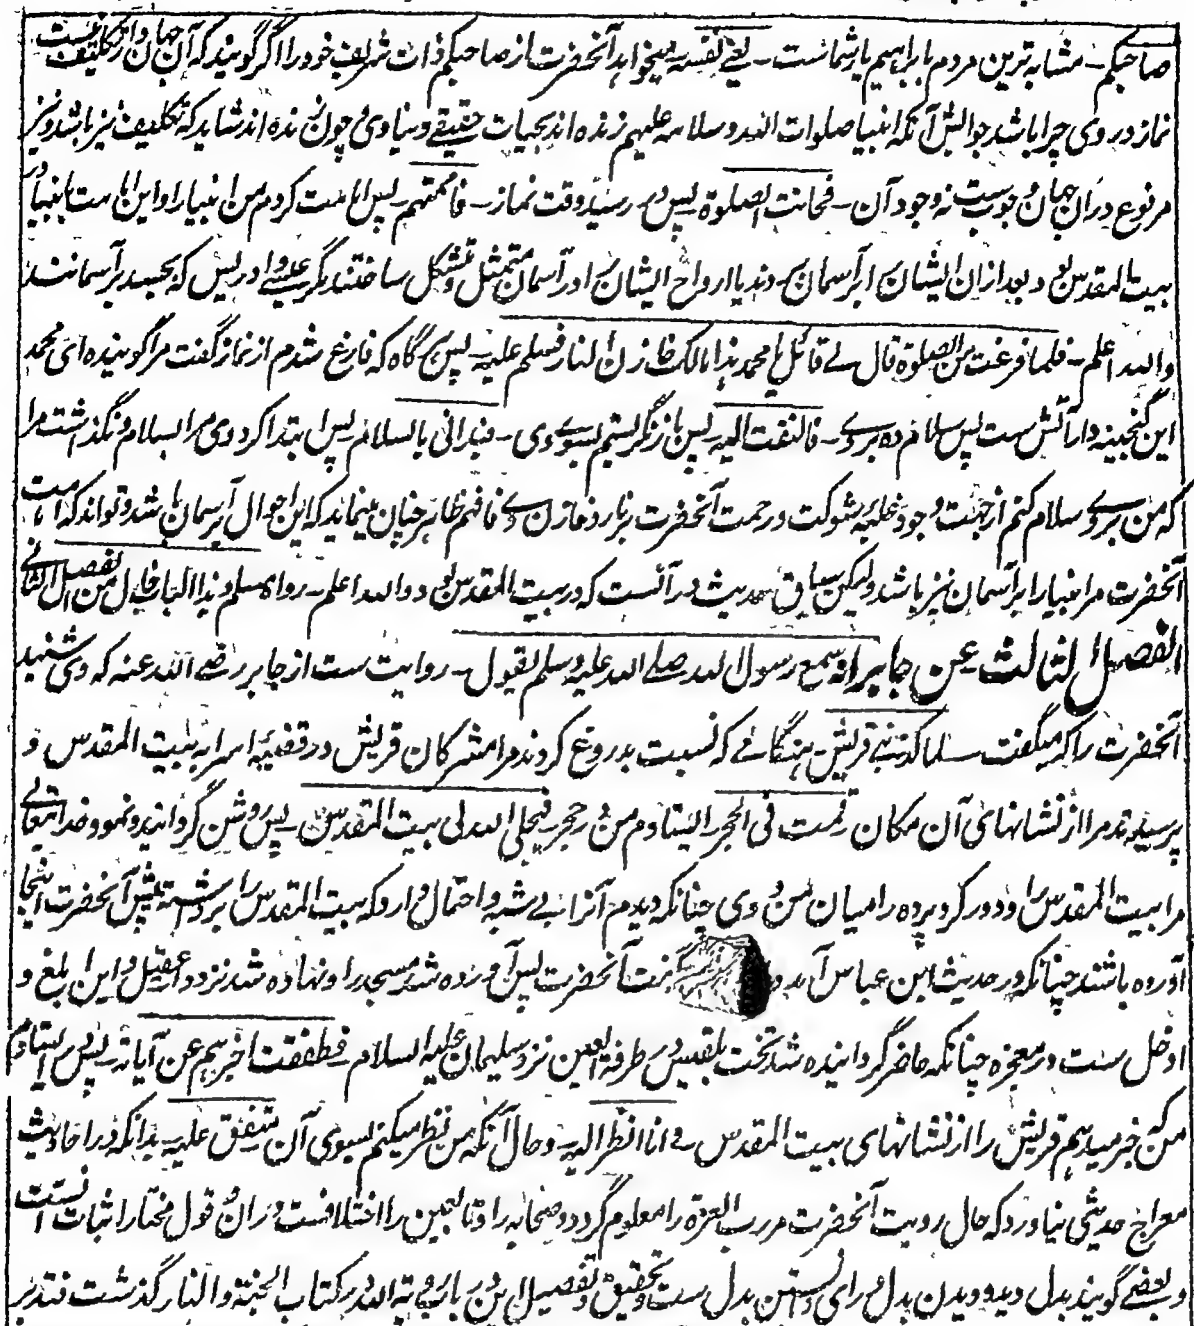 صاحبکم۔ مشابه ترین مردم بابراهیم یار شماست۔ یعنی نفسه میخواهد آنحضرت از صاحبکم ذات شریف خود را اگر گویند که آن جهان دار تکلیف نیست
نماز در وی چرا باشد جوابش آنکه انبیا صلوات الله و سلامه علیهم زنده اند بحیات حقیقی دنیاوی و چون زنده اند شاید که تکلیف نیز باشد و نیز
مرفوع در آن جهان وجوب ست نه وجود آن۔ فحانت الصلوة پس در رسید وقت نماز۔ فاممتهم پس امامت کردم من انبیا را و این امامت بانبیا در
بیت المقدس بود بعد از آن ایشان را بر آسمان بردند یا ارواح ایشان را در آسمان متمثل و متشکل ساختند مگر عیسی و ادریس که بجسد بر آسمانند
والله اعلم۔ فلما فرغت من الصلوة قال لی قائل یا محمد هذا مالک خازن النار فسلم علیه۔ پس هرگاه که فارغ شدم از نماز گفت مرا گوینده ای محمد
این گنجینه دار آتش ست پس سلام ده بر وی۔ فالتفت الیه۔ پس باز نگریستم بسوی وی۔ فبدأنی بالسلام پس ابتدا کرد وی مرا بسلام و نگذاشت مرا
که من بر وی سلام کنم از جهت وجود غلبه شوکت و رحمت آنحضرت بر نار و خازن وی فافهم ظاهر چنان مینماید که این احوال بر آسمان باشد و تواند که امامت
آنحضرت مر انبیا را بر آسمان نیز باشد ولیکن سیاق حدیث در آنست که در بیت المقدس بود والله اعلم۔ رواه مسلم و هذا الباب خال من الفصل الثانی
الفصل الثالث عن جابر انه سمع رسول الله صلی الله علیه وسلم یقول۔ روایت ست از جابر رضی الله عنه که وی شنید
آنحضرت را که میگفت لما کذبنی قریش۔ هنگامی که نسبت بدروغ کردند مرا مشرکان قریش در قضیۀ اسرا به بیت المقدس و
پرسیدند مرا از نشانهای آن مکان قمت فی الحجر ایستادم من در حجر فجلی الله لی بیت المقدس۔ پس روشن گردانید و نمود خدا تعالی
مرا بیت المقدس را و دور کرد پرده را میان من و وی چنانکه دیدم آنرا بی شبه و احتمال دارد که بیت المقدس را برداشته پیش آنحضرت اینجا
آورده باشند چنانکه در حدیث ابن عباس آمده گفت آنحضرت پس آورده شد مسجد را و نهاده شد نزد دار عقیل و این ابلغ و
ادخل ست در معجزه چنانکه حاضر گردانیده شد تخت بلقیس در طرفة العین نزد سلیمان علیه السلام فطفقت اخبرهم عن آیاته پس در ایستادم
که خبر میدهم قریش را از نشانهای بیت المقدس و انا انظر الیه۔ و حال آنکه من نظر میکنم بسوی آن متفق علیه بدانکه در احادیث
معراج حدیثی نیاورد که حال رویت آنحضرت مر رب العزة را معلوم گردد و صحابه را و تابعین را اختلافست در آن و قول مختار اثبات آنست
و بعضی گویند بدل دید و دیدن بدل ورای دانستن بدل ست و تحقیق و تفصیل این در باب رویة الله در کتاب الجنة والنار گذشت فتدبر